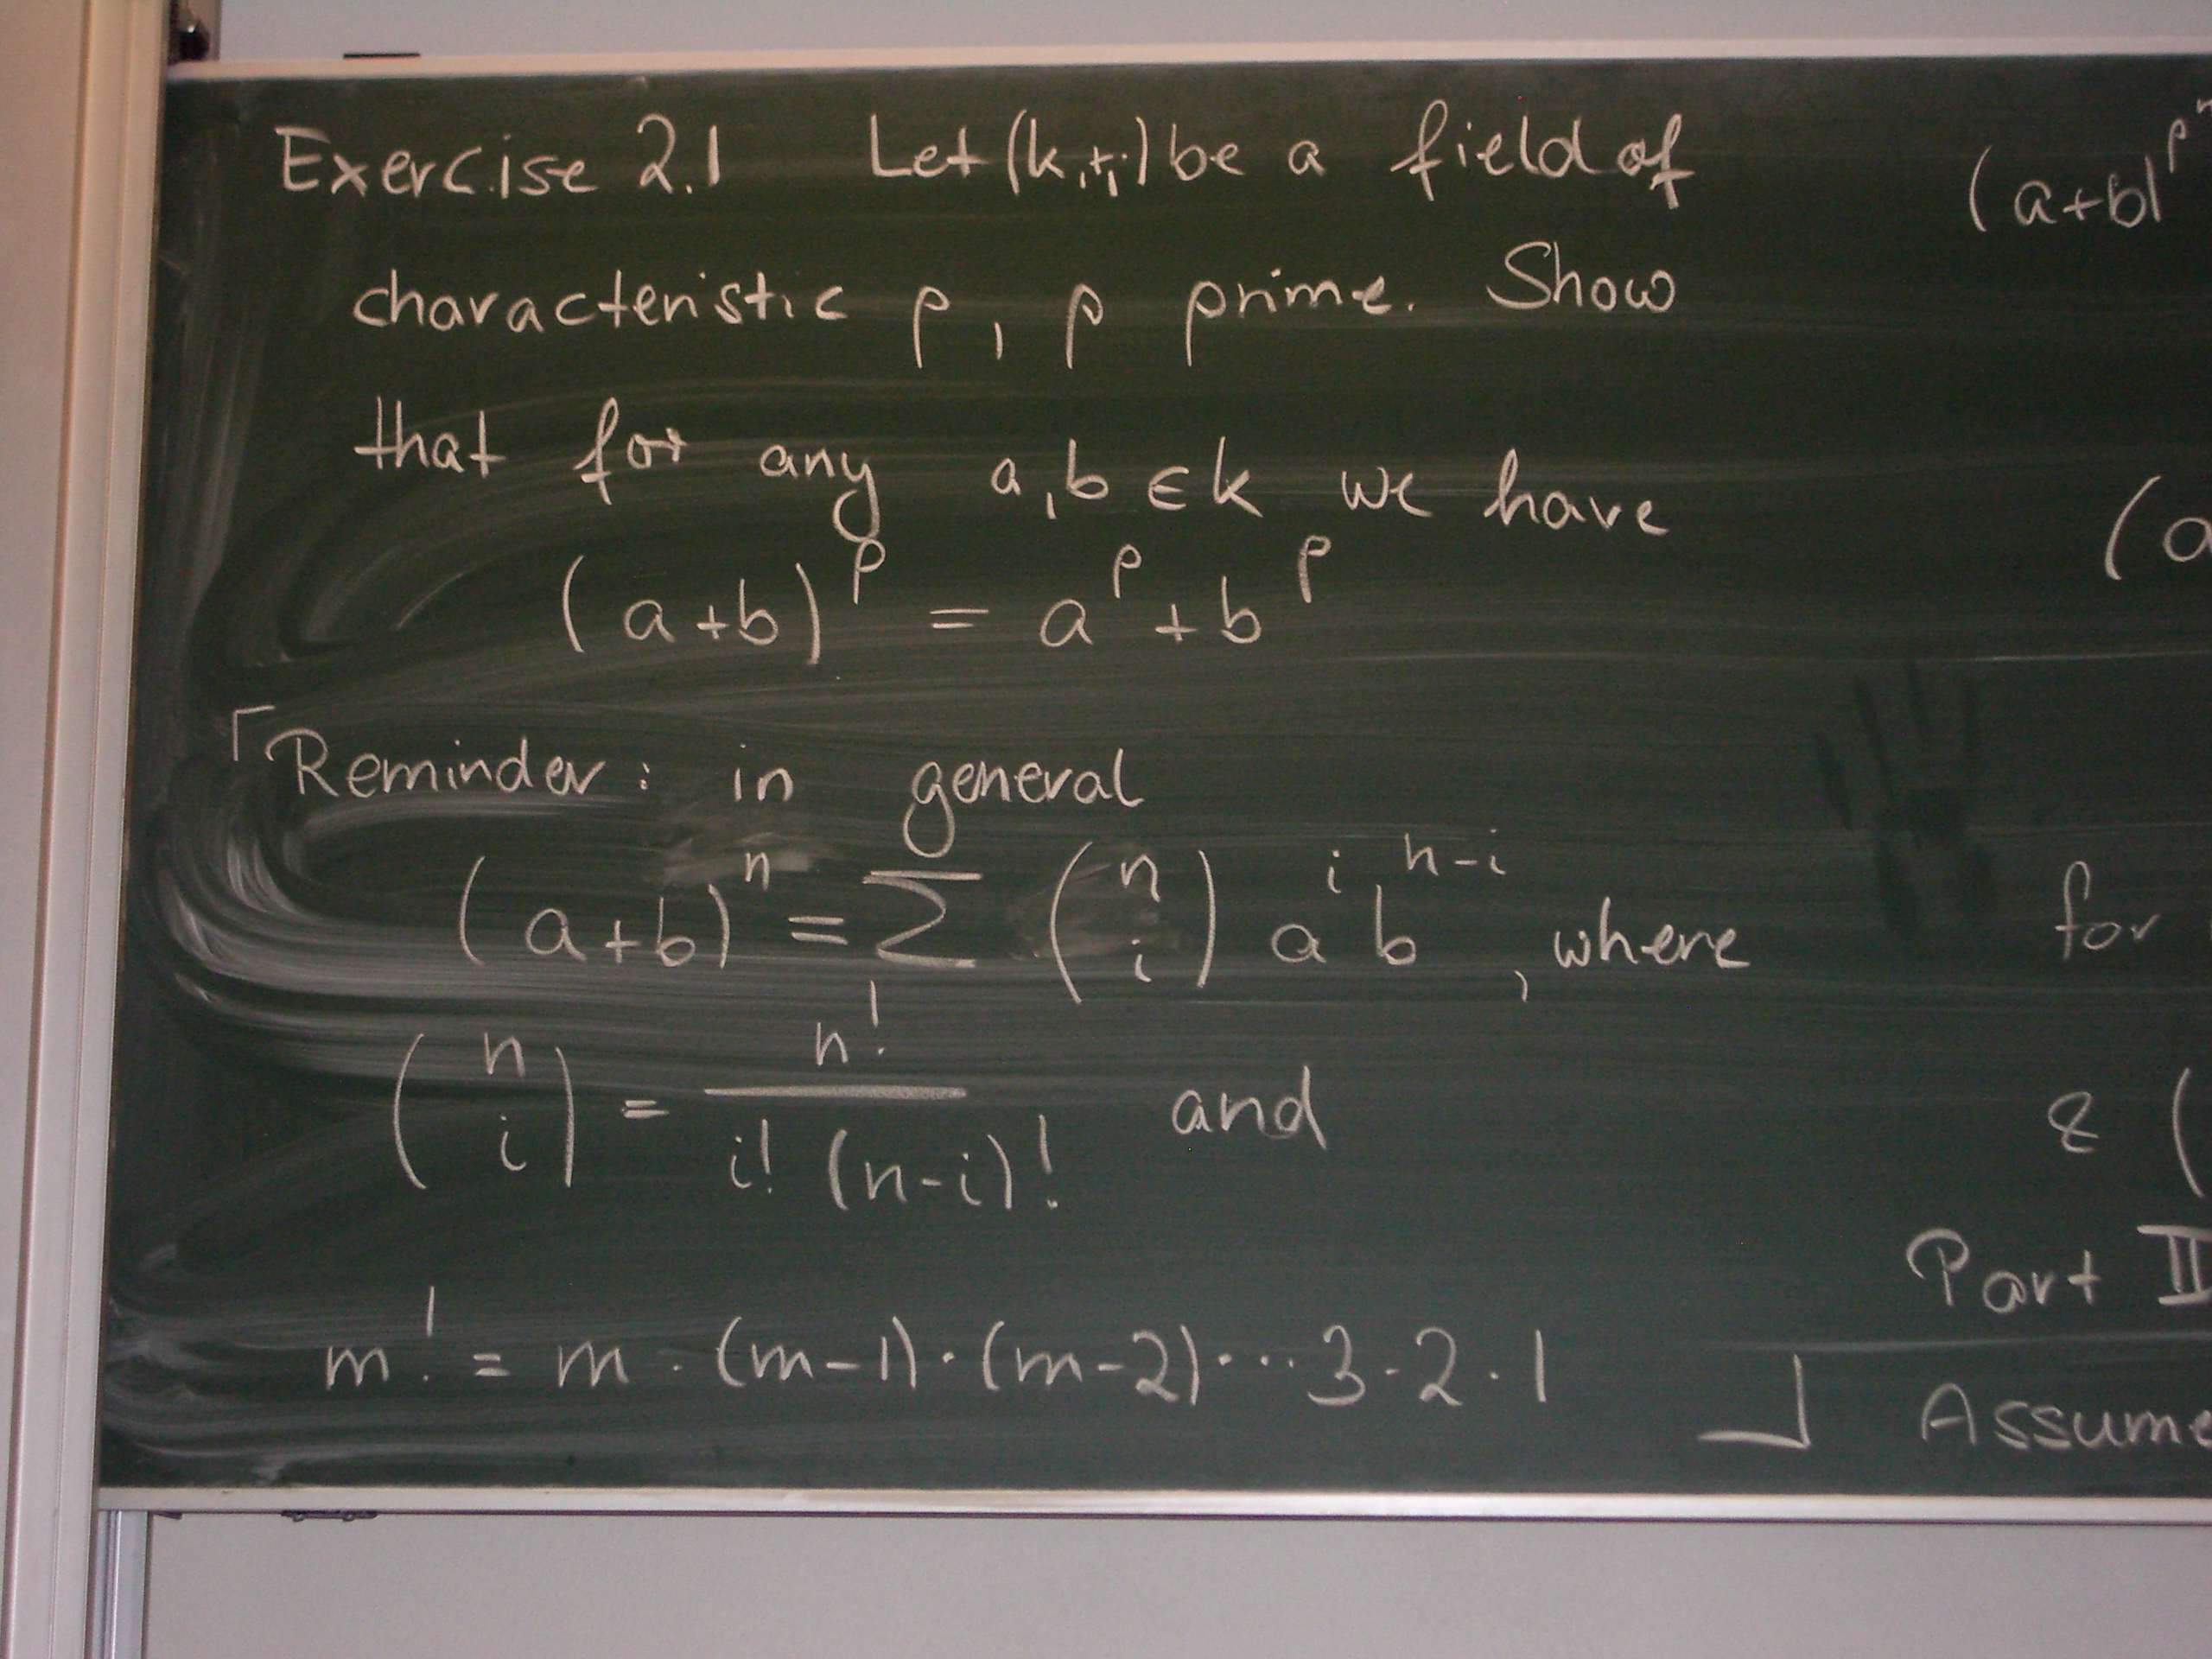 Exercise 2.1 Let (k,+,·) be a field of
characteristic p, p prime. Show
that for any a,b ∈ k we have
(a+b)^p = a^p + b^p
⌈Reminder: in general
(a+b)^n = Σ (n i) a^i b^{n-i}, where
(n i) = n! / i! (n-i)! and
m! = m · (m-1) · (m-2) ··· 3 · 2 · 1 ⌋
(a+b)^p
(a
for
& (
Part II
Assume